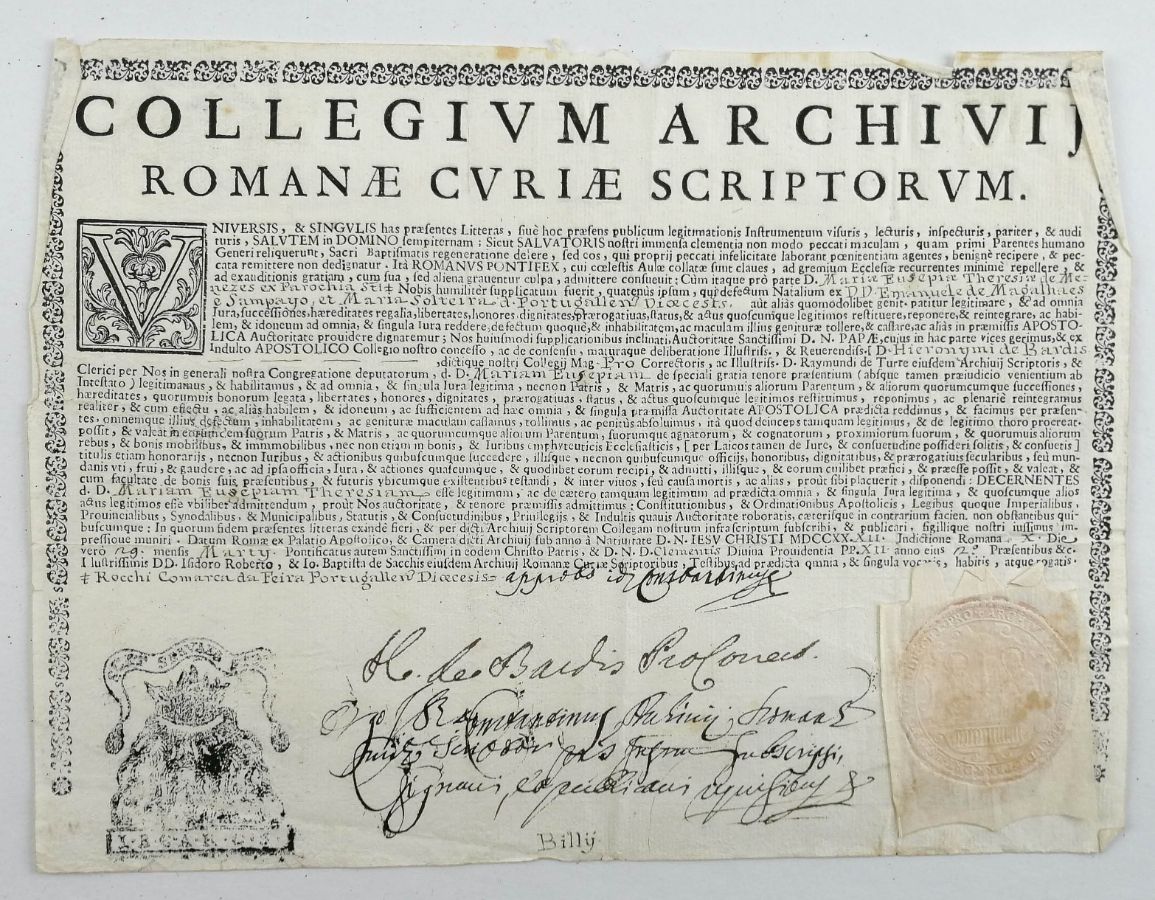 COLLEGIVM ARCHIVIJ
ROMANÆ CVRIÆ SCRIPTORVM.
VNIVERSIS, & SINGVLIS has præsentes Litteras, siuè hoc præsens publicum legitimationis Instrumentum visuris, lecturis, inspecturis, pariter, & audi
turis, SALVTEM in DOMINO sempiternam: Sicut SALVATORIS nostri immensa clementia non modo peccati maculam, quam primi Parentes humano
Generi reliquerunt, Sacri Baptismatis regeneratione delere, sed eos, qui proprij peccati infelicitate laborant pœnitentiam agentes, benignè recipere, & pec-
cata remittere non dedignatur. Ità ROMANVS PONTIFEX, cui cœlestis Aulæ collatæ sunt claues, ad gremium Ecclesiæ recurrentes minimè repellere, &
ad exauditionis gratiam, cum sua, sed aliena grauentur culpa, admittere consueuit: Cùm itaque pro parte D. Mariæ Eusepiæ Theresiæ de Me-
nezes ex Parochia Sti‡ Nobis humilitèr supplicatum fuerit, quatenùs ipsum, qui defectum Natalium ex DD. Emanuele de Magalhaes
e Sampayo, et Maria Solteira d. Portugallen Diœcesis. aut aliàs quomodolibet genit. patitur legitimare, & ad omnia
Iura, successiones, hæreditates regalia, libertates, honores dignitates, prærogatiuas, status, & actus quoscunque legitimos restituere, reponere, & reintegrare, ac habi-
lem, & idoneum ad omnia, & singula Iura reddere, defectum quoquè, & inhabilitatem, ac maculam illius genituræ tollere, & cassare, ac aliàs in præmissis APOSTO-
LICA Auctoritate prouidere dignaremur; Nos huiusmodi supplicationibus inclinati, Auctoritate Sanctissimi D. N. PAPÆ, cuius in hac parte vices gerimus, & ex
Indulto APOSTOLICO Collegio nostro concesso, ac de consensu, maturaque deliberatione Illustriss., & Reuerendiss. D. Hieronymi de Bardis
dictique nostri Collegij Mag. Pro Correctoris, ac Illustriss. D. Raymundi de Turre eiusdem Archiuij Scriptoris, &
Clerici per Nos in generali nostra Congregatione deputatorum, d. D. Mariam Eusepiam de speciali gratia tenore præsentium (absque tamen præiudicio venientum ab
Intestato) legitimamus, & habilitamus, & ad omnia, & singula Iura legitima, necnon Patris, & Matris, ac quorumuis aliorum Parentum, & aliorum quorumcumque successiones,
hæreditates, quorumuis bonorum legata, libertates, honores, dignitates, prærogatiuas, status, & actus quoscunque legitimos restituimus, reponimus, ac plenariè reintegramus
realiter, & cum effectu, ac aliàs habilem, & idoneum, ac sufficientem ad hæc omnia, & singula præmissa Auctoritate APOSTOLICA prædicta reddimus, & facimus per præsen-
tes. omnemque illius defectum, inhabilitatem, ac genituræ maculam cassamus, tollimus, ac penitùs absoluimus, ità quòd deinceps tamquam legitimus, & de legitimo thoro procreat.
possit, & valeat in quibuscumque suorum Patris, & Matris, ac quorumcumque aliorum Parentum, suorumque agnatorum, & cognatorum, proximiorum suorum, & quorumuis aliorum
rebus, & bonis mobilibus, & immobilibus, nec non etiam in bonis, & Iuribus emphyteuticis Ecclesiasticis, [per Laicos tamen de Iure, & consuetudine possideri solitis, & consuetis]
titulis etiam honorarijs, necnon Iuribus, & actionibus quibuscumque succedere, illisque, necnon quibuscumque officijs, honoribus, dignitatibus, & prærogatiuis secularibus, seù mun-
danis vti, frui, & gaudere, ac ad ipsa officia Iura, & actiones quascumque, & quodlibet eorum recipi, & admitti, illisque, & eorum cuilibet præfici, & præesse possit, & valeat, &
cum facultate de bonis suis præsentibus, & futuris vbicumque existentibus testandi, & inter viuos, seù causa mortis, ac alias, proùt sibi placuerit, disponendi: DECERNENTES
d. D. Mariam Eusepiam Theresiam esse legitimum, ac de cætero tamquam legitimum ad prædicta omnia, & singula Iura legitima, & quoscumque alios
actus legitimos esse vbilibet admittendum, proùt Nos auctoritate, & tenore præmissis admittimus: Constitutionibus, & Ordinationibus Apostolicis, Legibus quoque Imperialibus,
Prouincialibus, Synodalibus, & Municipalibus, Statutis, & Consuetudinibus, Priuilegijs, & Indultis quauis Auctoritate roboratis, cæterisque in contrarium facien. non obstantibus qui-
buscumque: In quorum fidem præsentes litteras exindè fieri, & per dicti Archiuij Scriptorem Collegam nostrum infrascriptum subscribi, & publicari, sigillique nostri iussimus im-
pressione muniri. Datum Romæ ex Palatio Apostolico, & Camera dicti Archiuij sub anno à Natiuitate D. N. IESV CHRISTI MDCCXX.XII. Indictione Romana X. Die
verò 29. mensis Marty. Pontificatus autem Sanctissimi in eodem Christo Patris, & D. N. D. Clementis Diuina Prouidentia PP. XII. anno eius 2.º Præsentibus &c.
Illustrissimis DD. Isidoro Roberto, & Io. Baptista de Sacchis eiusdem Archiuij Romanæ Curiæ Scriptoribus, Testibus ad prædicta omnia, & singula vocatis, habitis, atque rogatis.
‡ Rocchi Comarca da Feira Portugallen Diœcesis=
H. de Bardis ProCorrect.
Ego Constantinus
subscripsi,
Billÿ